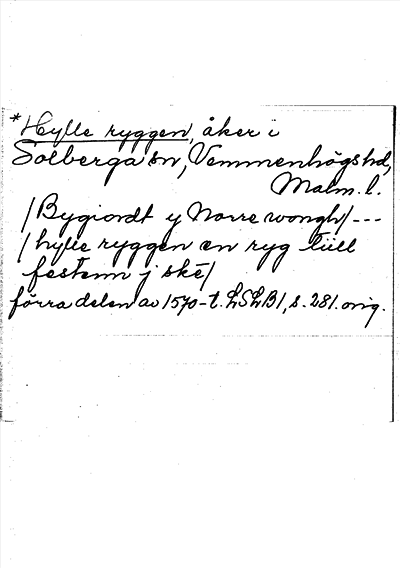 *Hylle ryggen, åker i
Solberga sn, Vemmenhögs hd,
Malm. l.
/Bygiordt y Norre wongh/ ---
/hylle ryggen en ryg tiill
festenn j ské/
förra delen av 1570-t. LSLB1, s. 281. orig.